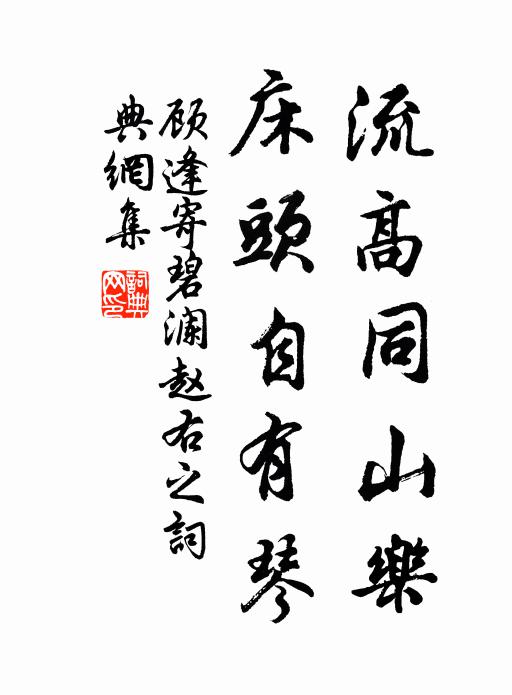 流高同山樂
床頭自有琴
顾逢寄碧澜赵右之詞
典網集
詞典网印